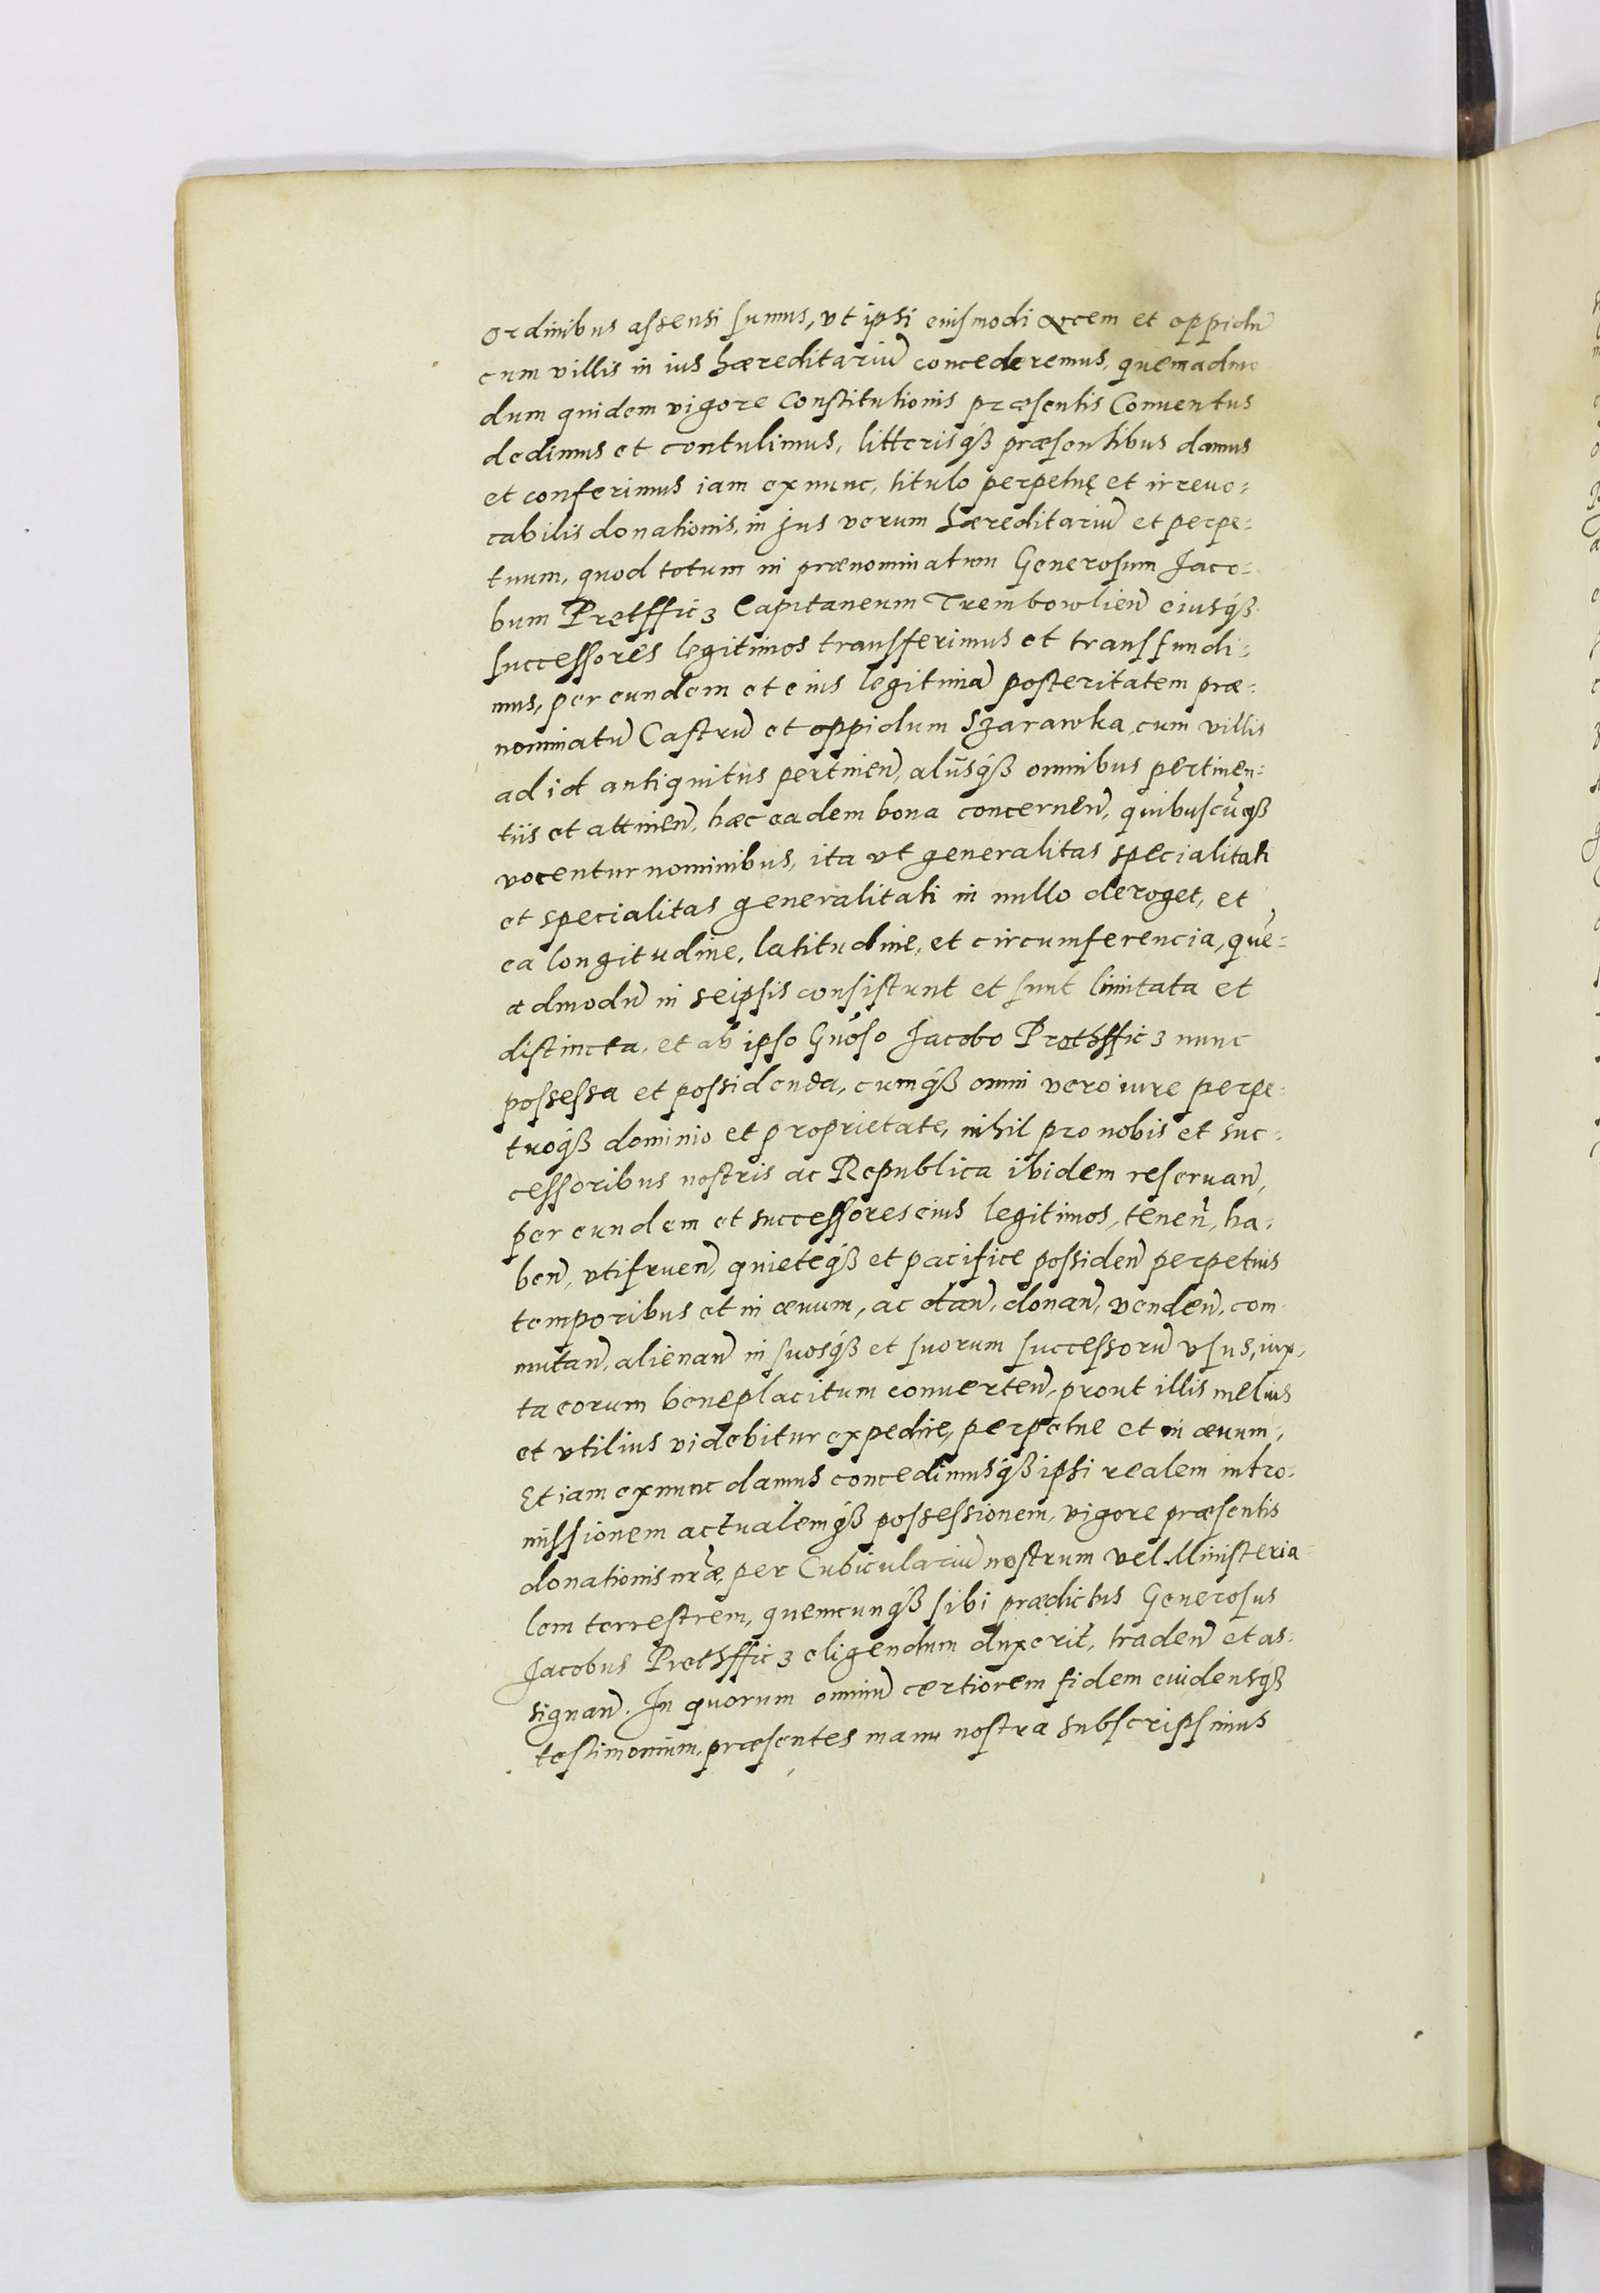 ordinibus assensi sumus, vt ipsi eiusmodi arcem et oppidũ
cum villis in ius hæreditariũ concederemus, quemadmo
dum quidem vigore Constitutionis præsentis Conuentus
dedimus et contulimus, litterisq́ꝫ præsentibus damus
et conferimus iam ex nunc, titulo perpetuę et irreuo:
cabilis donationis, in jus verum hæreditariũ et perpe:
tuum, quod totum in prænominatum Generosum Jaco:
bum Pretfficz Capitaneum Trembowlieñ eiusq́ꝫ
successores legitimos transferimus et transfundi:
mus, per eundem et eius legitimã posteritatem præ:
nominatũ Castrũ et oppidum Szarawka, cum villis
ad id antiquitus pertineñ, alijsq́ꝫ omnibus pertinen:
tiis et attineñ, hæc eadem bona concerneñ, quibuscũqꝫ
vocentur nominibus, ita vt generalitas specialitati
et specialitas generalitati in nullo deroget, et
ea longitudine, latitudine, et circumferencia, quẽ:
admodũ in seipsis consistunt et sunt limitata et
distincta, et ab ipso Gnõso Jacobo Prethfficz nunc
possessa et possidenda, cumq́ꝫ omni vero iure perpe:
tuoq́ꝫ dominio et proprietate, nihil pro nobis et suc:
cessoribus nostris ac Republica ibidem reseruañ,
per eundem et successores eius legitimos, teneñ, ha:
beñ, vtifrueñ, quieteq́ꝫ et pacifice possideñ perpetuis
temporibus et in æuum, ac dañ, donañ, vendeñ, com
mutañ, alienañ in suosq́ꝫ et suorum successorũ vsus, iux,
ta eorum beneplacitum conuerteñ, prout illis melius
et vtilius videbitur expedire, perpetue et in æuum,
Et iam exnunc damus concedimusq́ꝫ ipsi realem intro:
missionem actualemq́ꝫ possessionem, vigore præsentis
donationis nr̃æ, per Cubiculariũ nostrum vel Ministeria:
lem terrestrem, quemcunq́ꝫ sibi prædictus Generosus
Jacobus Prethfficz eligendum duxerit, tradeñ et as:
signañ. In quorum omniũ certiorem fidem euidensq́ꝫ
testimonium, præsentes manu nostra subscripsimus